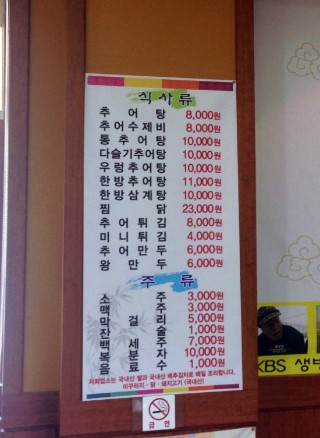 식사류
추어탕 8,000원
추어수제비 8,000원
통추어탕 10,000원
다슬기추어탕 10,000원
우렁추어탕 10,000원
한방추어탕 11,000원
한방삼계탕 10,000원
찜닭 23,000원
추어튀김 8,000원
미니튀김 4,000원
추어만두 6,000원
왕만두 6,000원
주류
소주 3,000원
맥주 3,000원
막걸리 5,000원
잔술 1,000원
백세주 7,000원
복분자 10,000원
음료수 1,000원
저희업소는 국내산 쌀과 국내산 배추김치로 매일 조리합니다.
미꾸라지·닭·돼지고기 (국내산)
금연
KBS 생